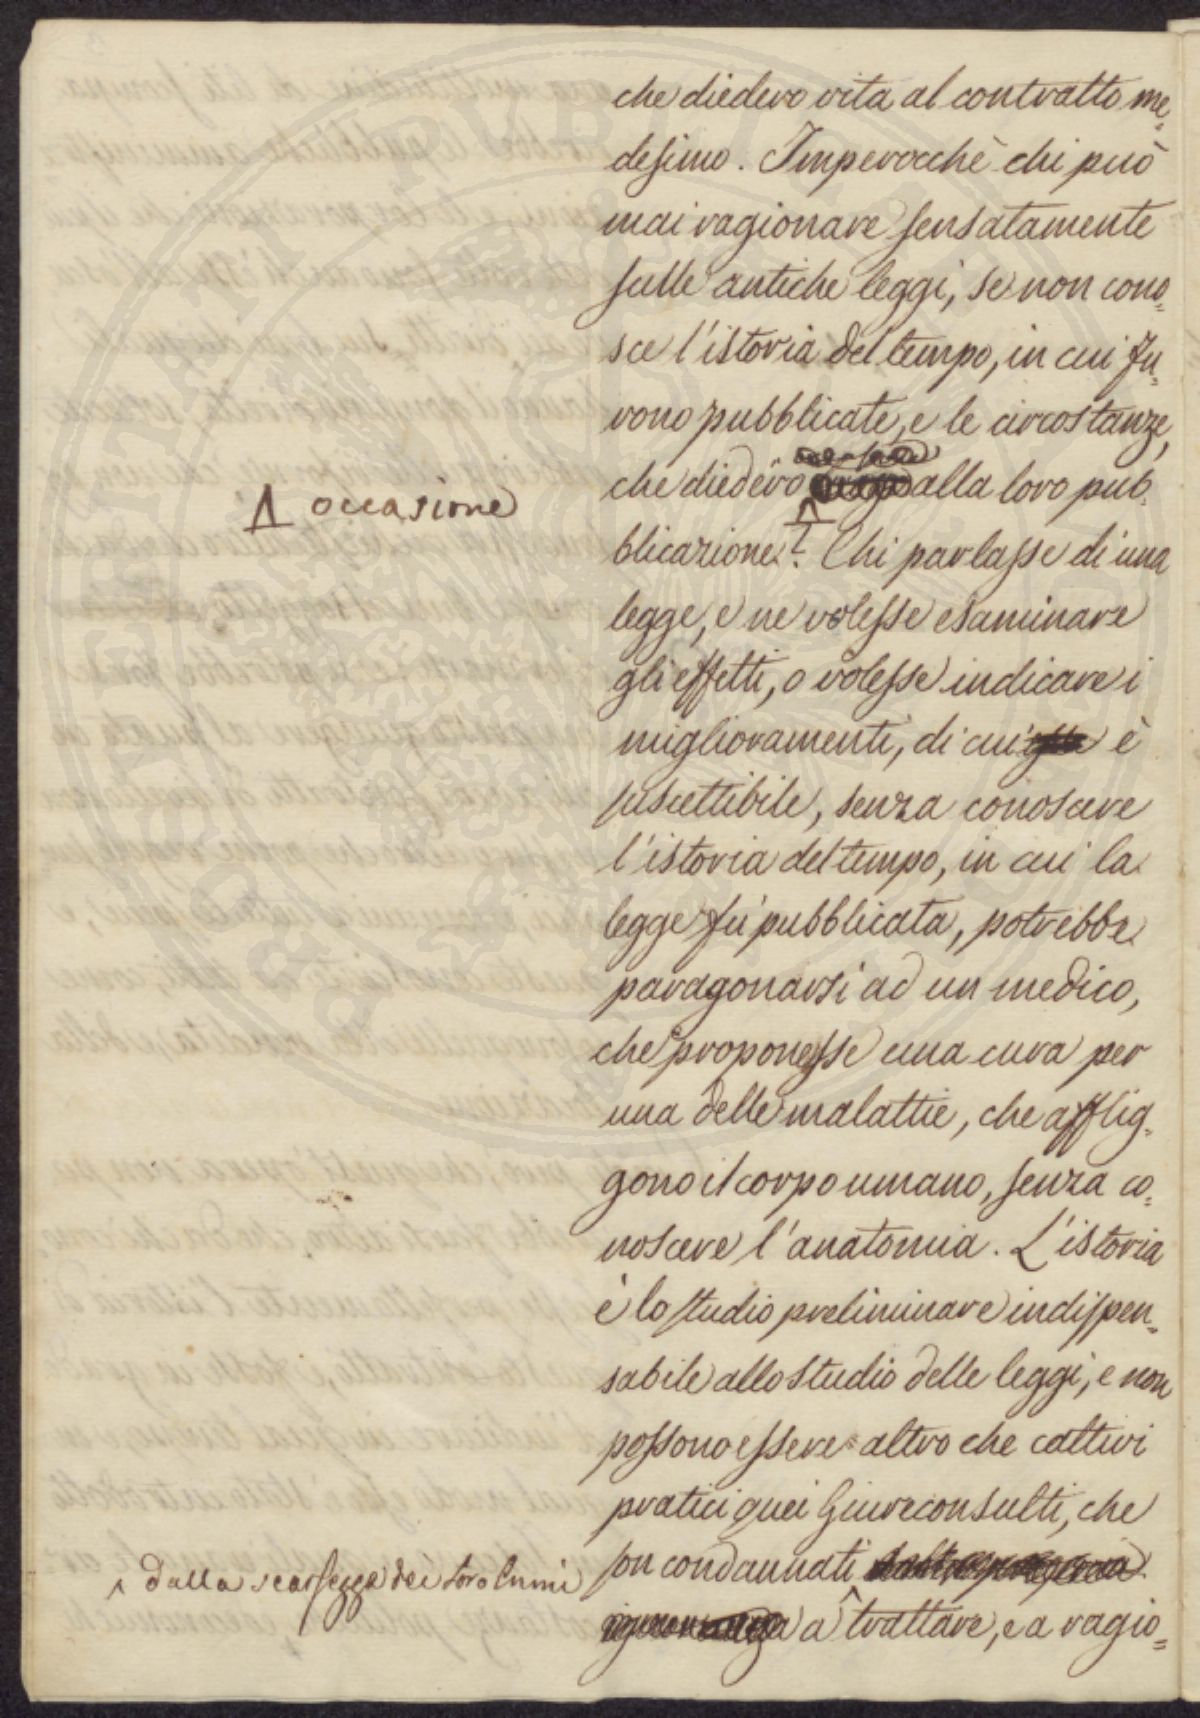 che diedero vita al contratto me=
desimo. Imperocchè chi può
mai ragionare sensatamente
sulle antiche leggi, se non cono=
sce l'istoria del tempo, in cui fu=
rono pubblicate, e le circostanze,
che diedero alla loro pub=
⁁ occasione
blicazione? Chi parlasse di una
legge, e ne volesse esaminare
gli effetti, o volesse indicare i
miglioramenti, di cui è
suscettibile, senza conoscere
l'istoria del tempo, in cui la
legge fù pubblicata, potrebbe
paragonarsi ad un medico,
che proponesse una cura per
una delle malattie, che afflig=
gono il corpo umano, senza co=
noscere l'anatomia. L'istoria
è lo studio preliminare indispen=
sabile allo studio delle leggi, e non
possono essere altro che cattivi
pratici quei Giureconsulti, che
son condannati
⁁ dalla scarsezza dei loro lumi
ignoranza a ⁁ trattare, e a ragio=